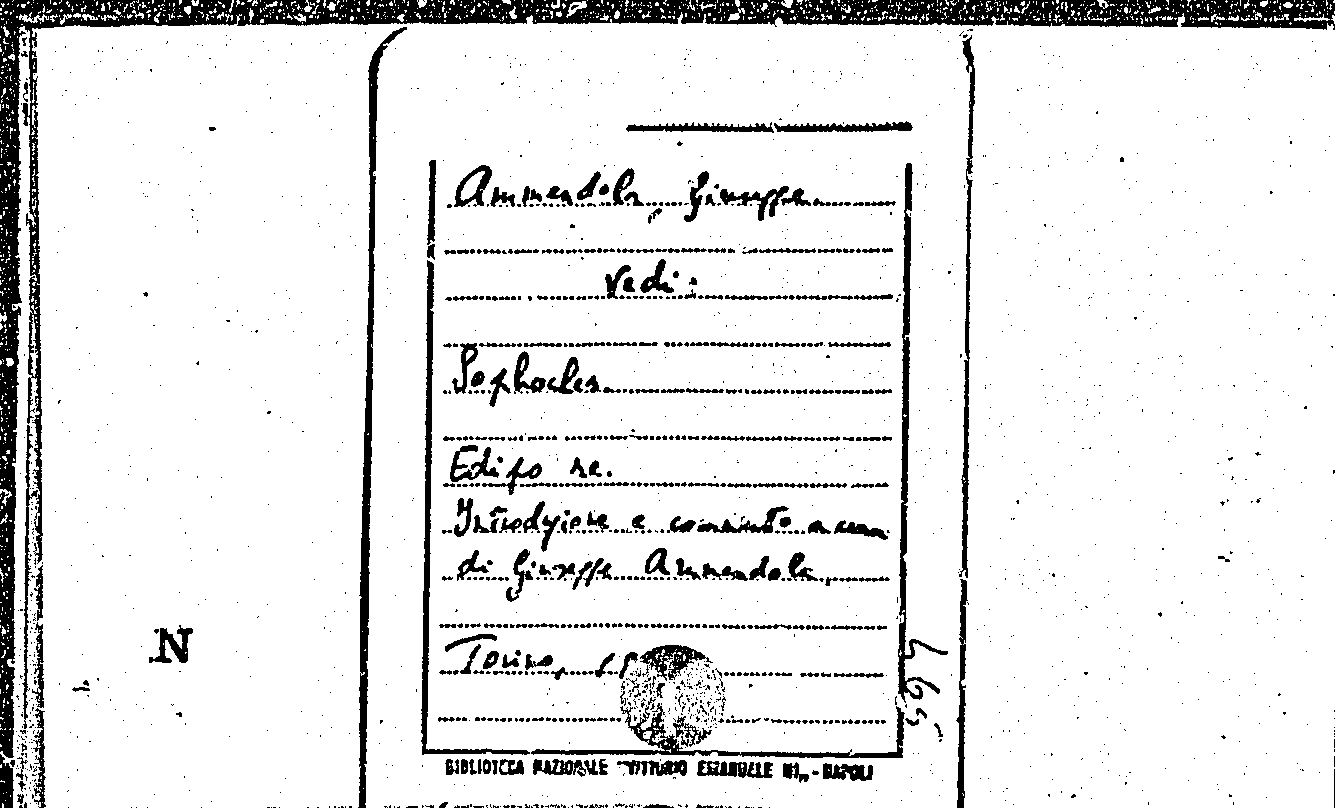 Ammendola, Giuseppe.
Vedi:
Sophocles.
Edipo re.
Introduzione e commento a cura
di Giuseppe Ammendola.
Torino,
N
BIBLIOTECA NAZIONALE "VITTORIO EMANUELE III„ - NAPOLI